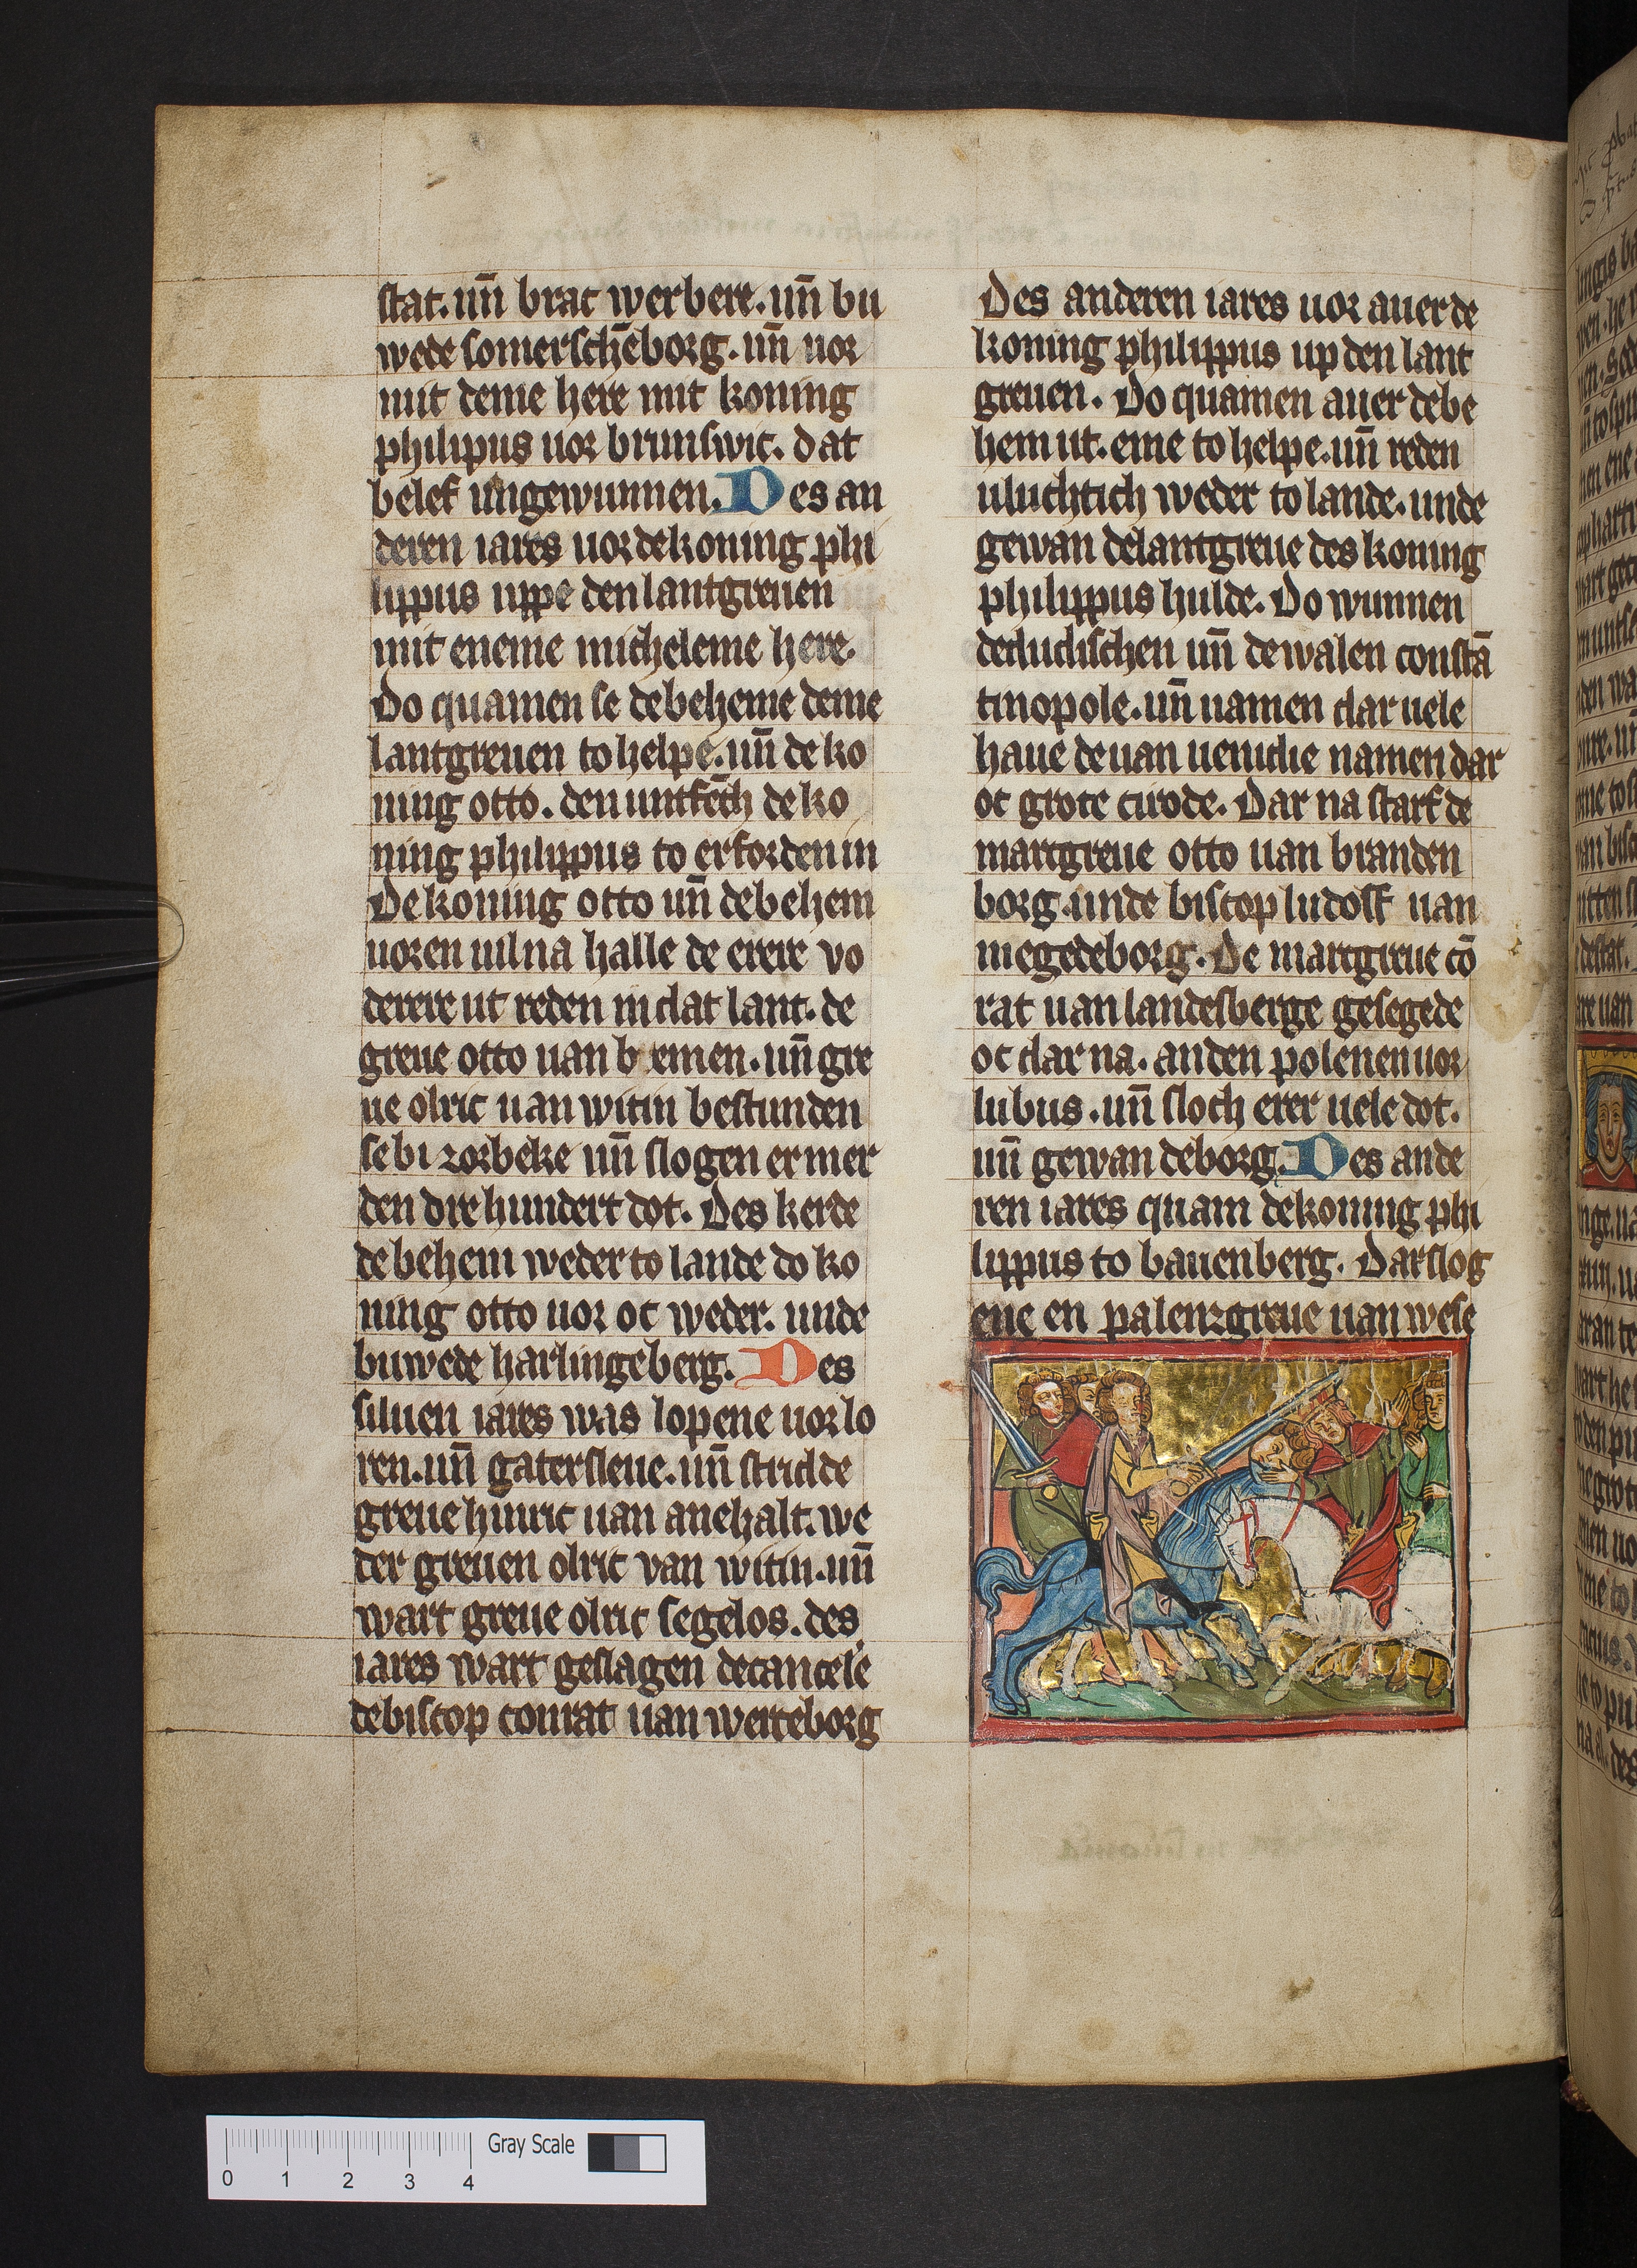 stat. un̄ brac werbere. un̄ bu
wede somersch̄eborg. un̄ uor
mit deme here mit koning
philipus uor brunswic. dat
belef ungewunnen. Des an
deren iares uor de koning phi
lippus uppe den lantgreuen
mit eneme micheleme here.
Do quamen se de beheme deme
lantgreuen to helpe. un̄ de ko
ning otto. den untfēch de ko
ning philippus to erforden in
De koning otto un̄ de behem
uoren uil na halle de erere vo
derere ut reden in dat lant. de
greue otto uan b emen. un̄ gre
ue olric uan witin bestunden
se bi zorbeke un̄ slogen er mer
den dre hundert dot. Des kerde
de behem weder to lande do ko
ning otto uor oc weder. unde
buwede harlingeberg. Des
siluen iares was lopene uorlo
ren. un̄ gatersleue. un̄ stridde
greue hinric uan anehalt. we
der greuen olric van witin. un̄
wart greue olric segelos. des
iares wart geslagen de cancele
de biscop conrat uan werceborg
Des anderen iares uor auer de
koning philippus up den lant
greuen. Do quamen auer de be
hem ut. eme to helpe. un̄ reden
uluchtich weder to lande. unde
gewan de lantgreue des koning
philippus hulde. Do wunnen
de dudischen un̄ de walen constā
tinopole. un̄ namen dar uele
haue de uan uenidie namen dar
oc grote cirode. Dar na starf de
marcgreue otto uan branden
borg. unde biscop ludolf uan
megedeborg. De marcgreue cō
rat uan landesberge gesegede
oc dar na. an den polenen uor
lubus. un̄ sloch erer uele dot.
un̄ gewan de borg. Des ande
ren iares quam de koning phi
lippus to bauenberg. Dar slog
ene en palenzgreue uan wese
Gray Scale
0 1 2 3 4